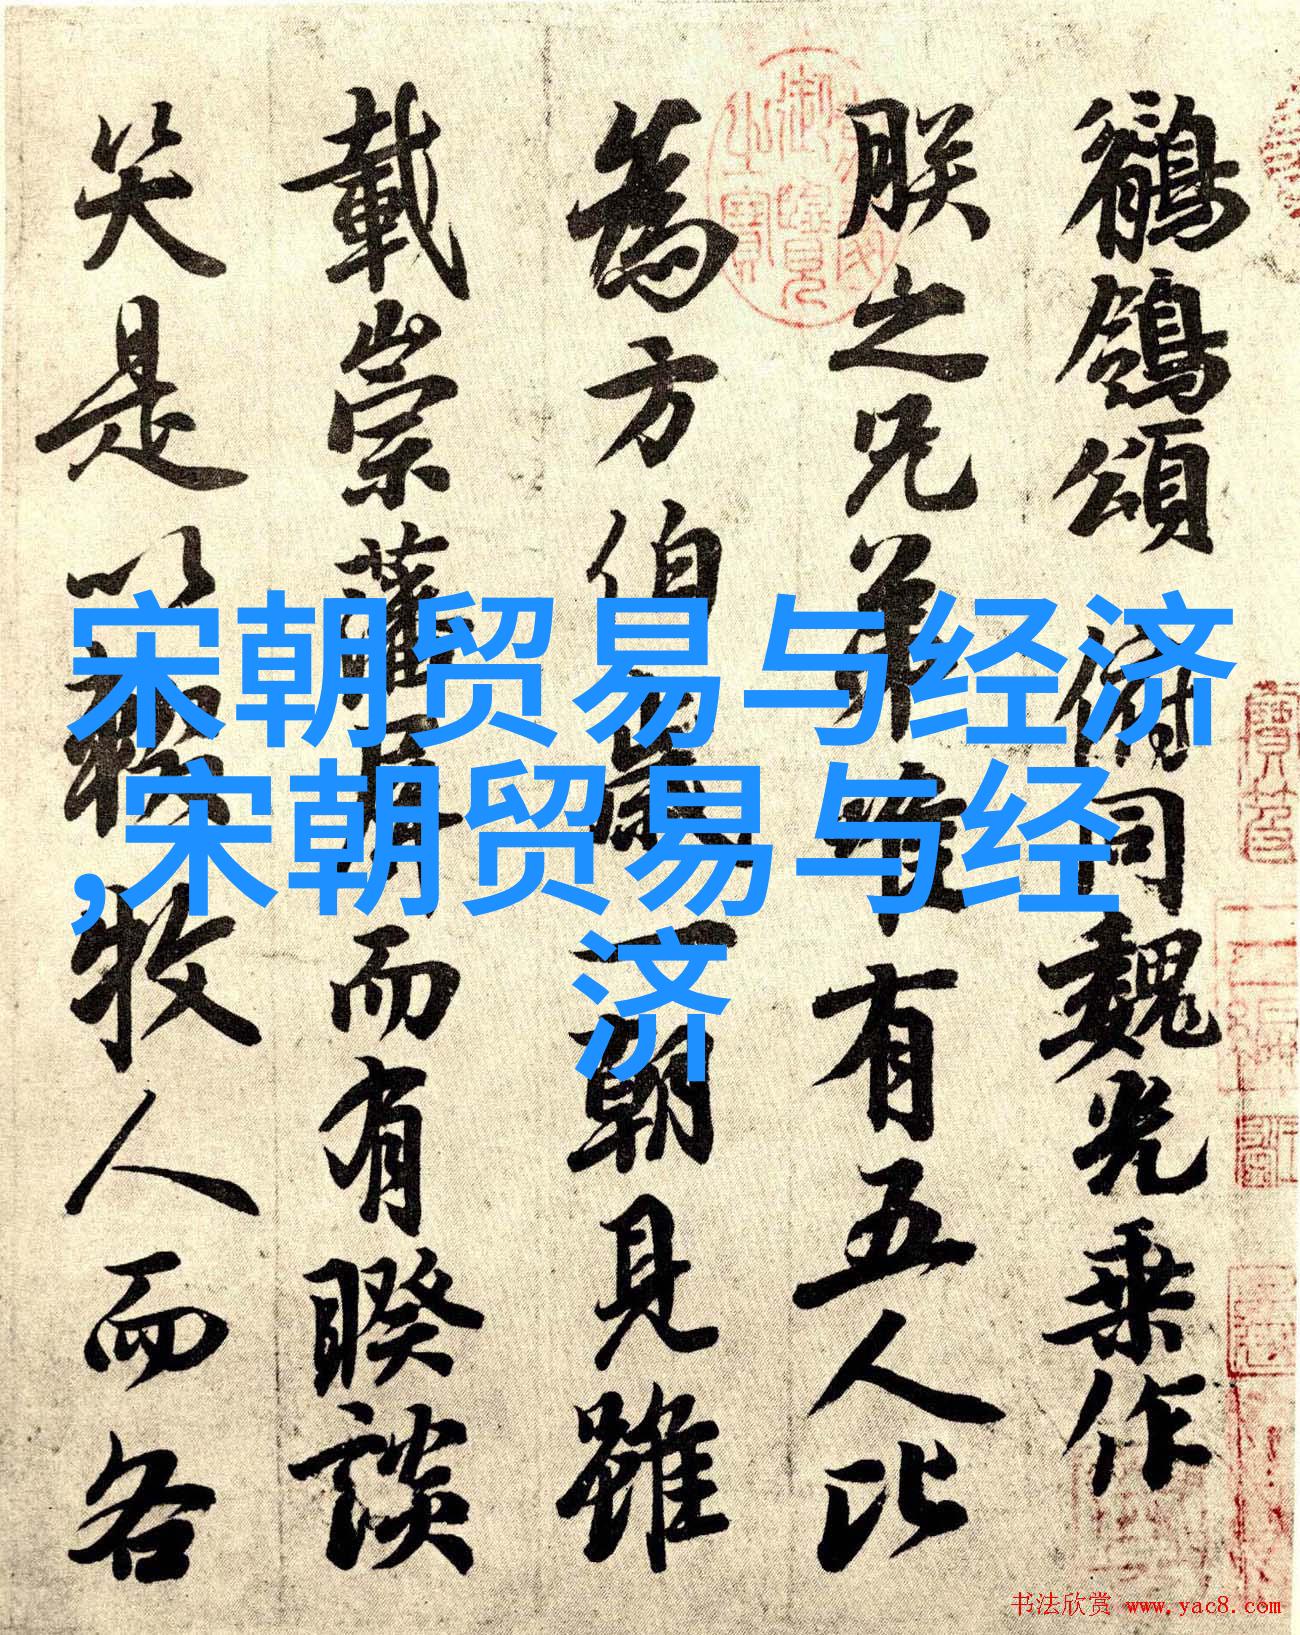 鶺鴒頌 俯同魏光乘作
朕之兄弟唯有五人比
為方伯歲一朝見雖
載崇藩屏而有睽談
笑是以輟牧人而各
宋朝贸易与经济
,宋朝贸易与经
济
书法欣赏 www.yac8.com